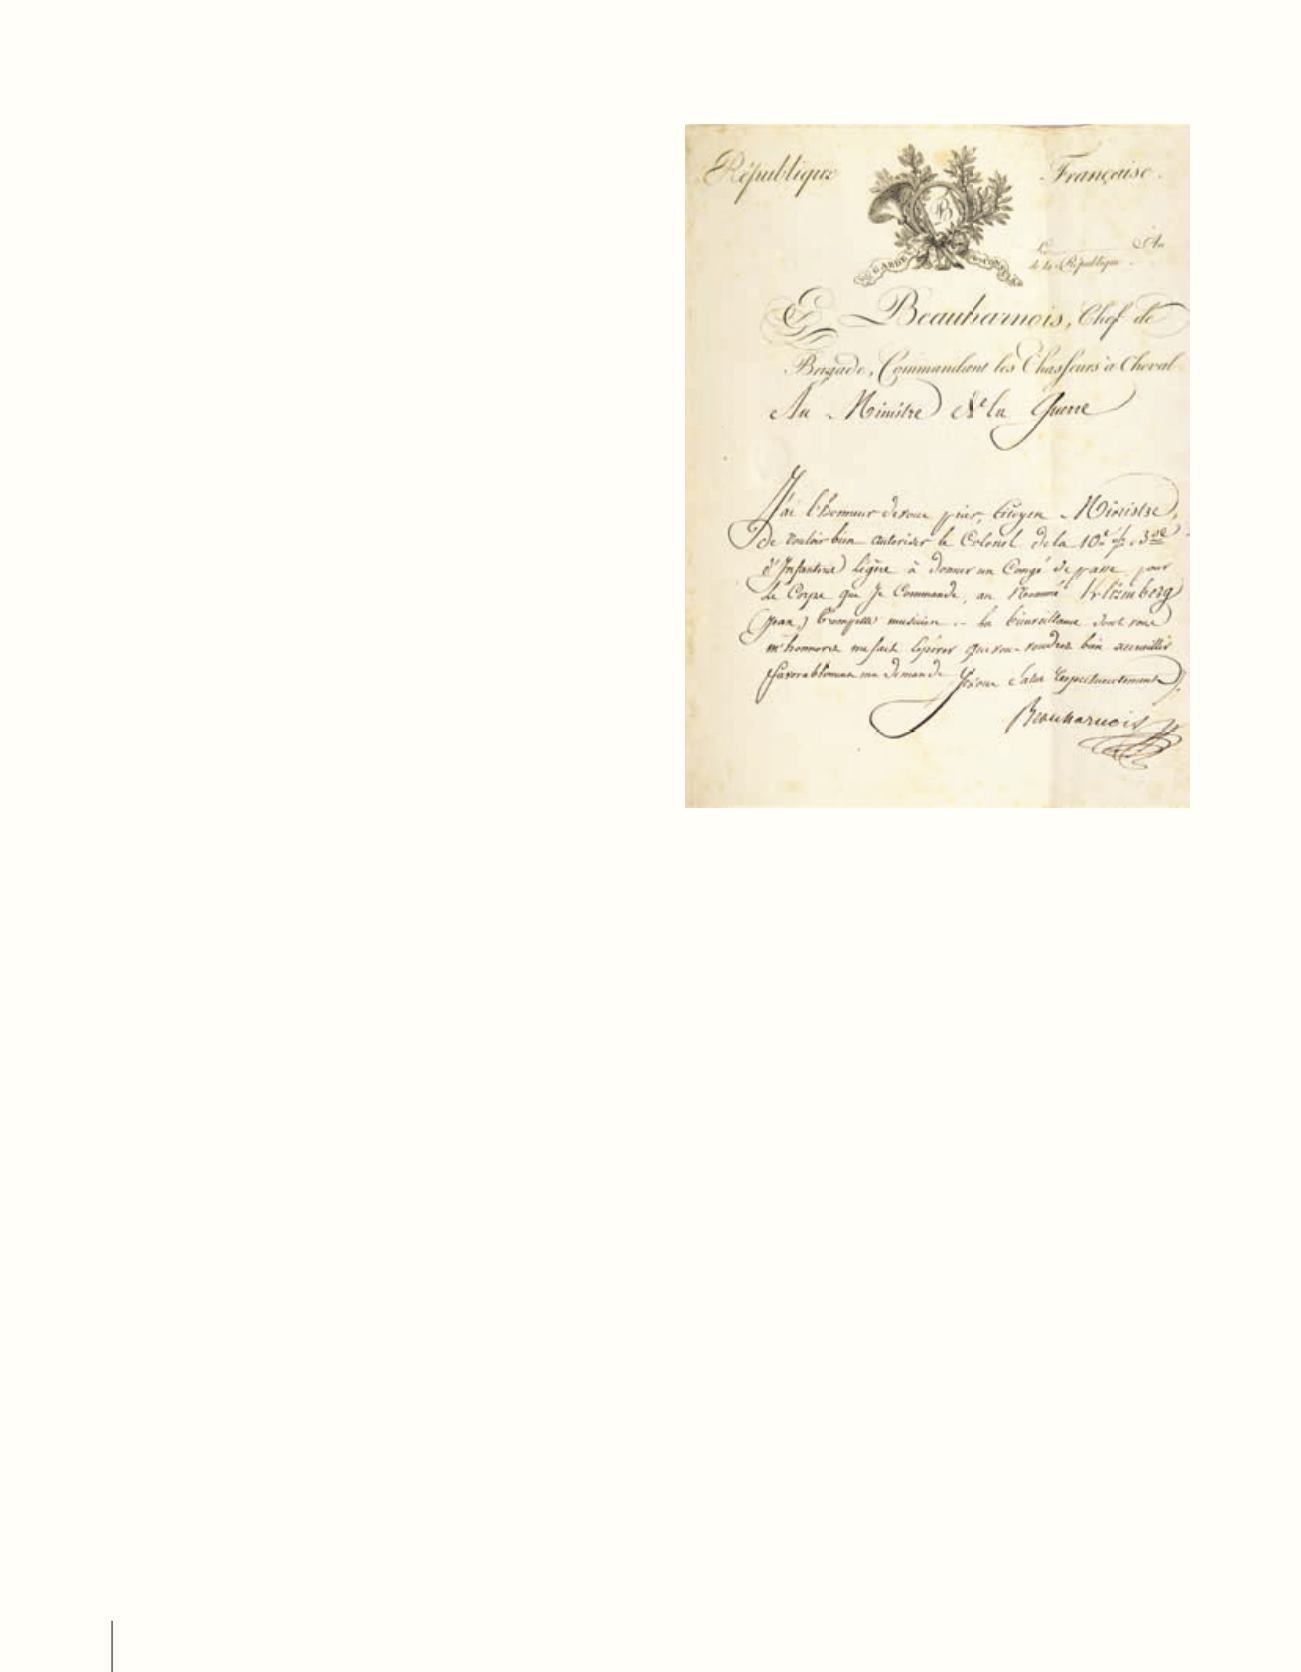 République Française.
B
GARDE
L An
de la République.
E Beauharnois, Chef de
Brigade, Commandant les Chasseurs à Cheval
Au Ministre de la Guerre
J'ai l'honneur de vous prier, Citoyen Ministre,
De vouloir bien autoriser le Colonel de la 10e
d'Infanterie légère à donner un Congé de passe pour
Le Corps que Je Commande, au Nommé Kleimberg
(Jean,) trompette musicien la bienveillance dont vous
m'honorez me fait Espérer que vous voudrez bien accueillir
favorablement ma demande Je vous salue respectueusement
Beauharnois